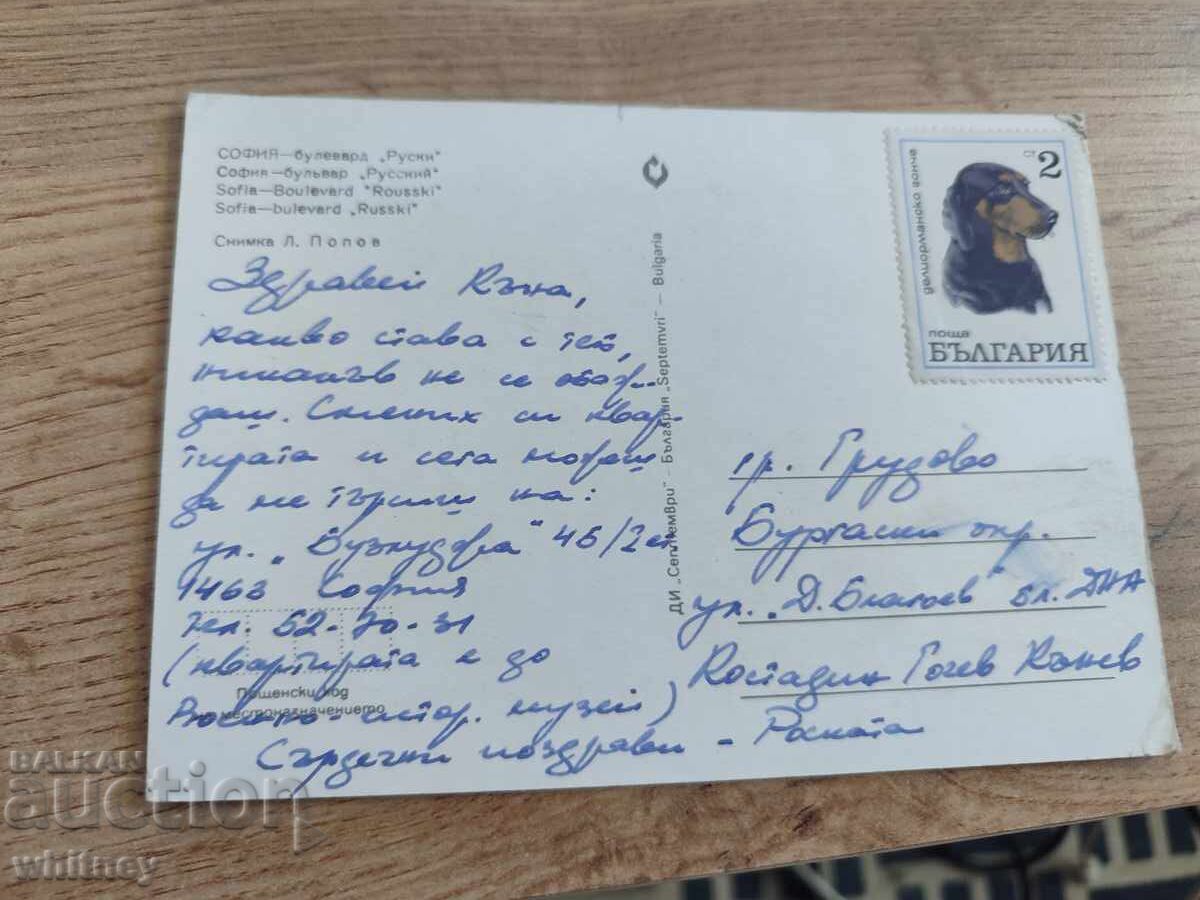 СОФИЯ—булевард „Руски"
София—бульвар „Русский"
Sofia—Boulevard "Rousski"
Sofia—bulevard „Russki"
Снимка Л. Попов
Здравей Къна,
какво става с теб,
никакъв не се обаж-
даш. Смених си квар-
тирата и сега можеш
да ме търсиш на:
ул. „Бузлуджа" 46/2
1463 София
тел. 52-70-31
(квартирата е до
Военно-истор. музей)
Сърдечни поздрави - Росната
Пощенски код
местоназначението
ДИ „Септември" — България „Septemvri" — Bulgaria
делиорманско гонче
2 ст
поща
БЪЛГАРИЯ
гр. Грудово
Бургаски окр.
ул. „Д. Благоев" бл. ДНА
Костадин Гочев Кънев
BALKAN
auction
whitney